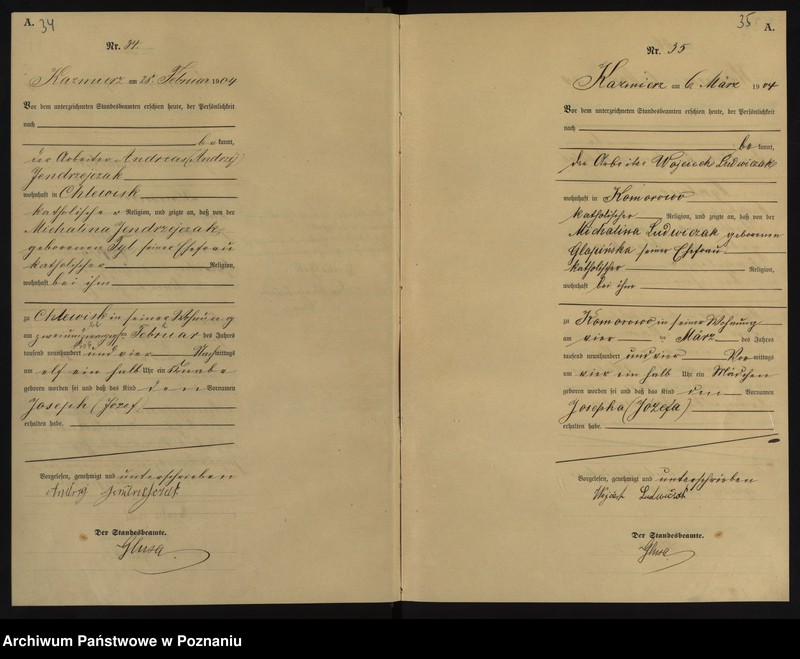 A. 34
Nr. 34.
Kazmierz am 25. Februar 1904
Vor dem unterzeichneten Standesbeamten erschien heute, der Persönlichkeit
nach
be kannt,
der Arbeiter Andreas (Andrzej)
Jendrzejczak
wohnhaft in Chlewisk
katholischer Religion, und zeigte an, daß von der
Michalina Jendrzejczak,
geborenen seiner Ehefrau
katholischer Religion,
wohnhaft bei ihm
zu Chlewisk in seiner Wohnung
am Februar des Jahres
tausend neunhundert und vier Nachmittags
um elf ein halb Uhr ein Knabe
geboren worden sei und daß das Kind den Vornamen
Joseph (Józef)
erhalten habe.
Vorgelesen, genehmigt und unterschrieben
Andrzej
Der Standesbeamte.
Glusa
35 A.
Nr. 35
Kazmierz am 6. März 1904
Vor dem unterzeichneten Standesbeamten erschien heute, der Persönlichkeit
nach
be kannt,
der Arbeiter Wojciech Ludwiczak
wohnhaft in Komorowo
katholischer Religion, und zeigte an, daß von der
Michalina Ludwiczak geborenen
Glapińska seiner Ehefrau
katholischer Religion,
wohnhaft bei ihm
zu Komorowo in seiner Wohnung
am vier ten März des Jahres
tausend neunhundert und vier Vormittags
um vier ein halb Uhr ein Mädchen
geboren worden sei und daß das Kind den Vornamen
Josepha (Józefa)
erhalten habe.
Vorgelesen, genehmigt und unterschrieben
Ludwiczak
Der Standesbeamte.
Glusa
Archiwum Państwowe w Poznaniu